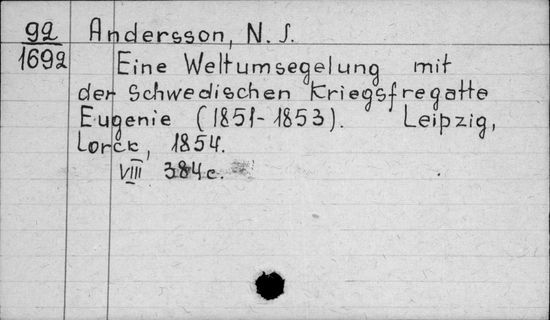 92 Andersson, N. J.
1692 Eine Weltumsegelung mit
der Schwedischen Kriegsfregatte
Eugenie (1851-1853). Leipzig,
Lorck, 1854.
VIII 384 c.